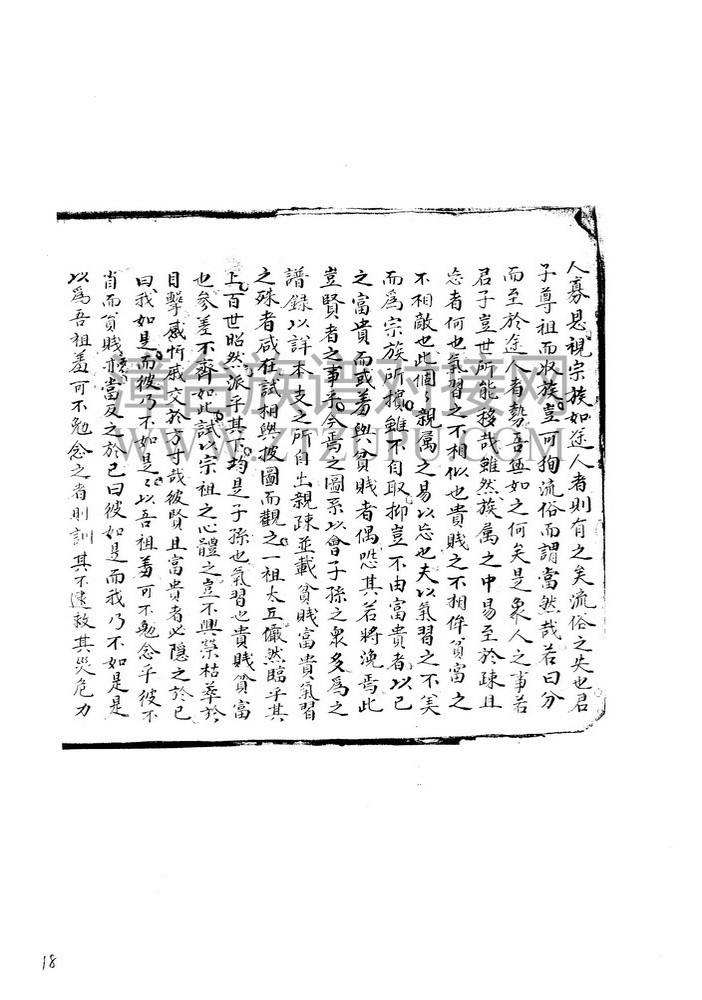 人寡恩視宗族如途人者則有之矣流俗之失也君
子尊祖而收族豈可狥流俗而謂當然哉若曰分
而至於途人者勢吾無如之何矣是衆人之事若
君子豈世所能移哉雖然族属之中易至於疎且
忘者何也氣習之不相似也貴賤之不相侔貧富之
不相敵也此個〻親属之易以忘也夫以氣習之不美
而爲宗族所擯雖不自取抑豈不由富貴者以已
之富貴而或羞與貧賤者偶恐其若將浼焉此
豈賢者之事乎今焉之圖系以會子孫之衆多爲之
譜錄以詳本支之所自出親疎並載貧賤富貴氣習
之殊者咸在試相與披圖而觀之一祖太丘儼然臨乎其
上百世昭然派乎其下均是子孫也氣習也貴賤貧富
也參差不齊如此試以宗祖之心體之豈不興榮枯萃於
目擊感忻戚交於方寸哉彼賢且富貴者必隱之於已
曰我如是而彼乃不如是〻以吾祖羞可不勉念乎彼不
肖而貧賤亦當反之於已曰彼如是而我乃不如是是
以爲吾祖羞可不勉念之者則訓其不逮救其災危力
漳台族谱对接网
WWW.ZTZUPU.COM
18